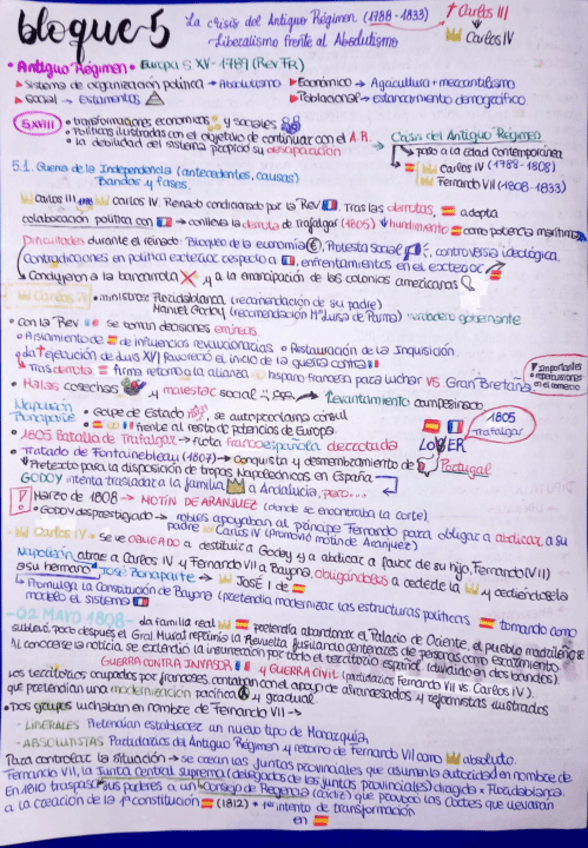 bloque 5 La crisis del Antiguo Régimen (1788-1833) † Carlos III
Liberalismo frente al Absolutismo Carlos IV
• Antiguo Régimen • Europa S. XV - 1789 (Rev FR)
▸ Sistema de organización política → Absolutismo ▸ Económico → Agricultura + mercantilismo
▸ Social → Estamentos ▸ Poblacional → estancamiento demográfico.
S.XVIII • transformaciones económicas y sociales
• Políticas ilustradas con el objetivo de continuar con el A.R. → Crisis del Antiguo Régimen
• la debilidad del sistema propició su desaparición ↳ paso a la Edad contemporánea
Carlos IV (1788-1808)
Fernando VII (1808-1833)
5.1. Guerra de la Independencia (antecedentes, causas)
Bandos y fases.
Carlos III 1788 Carlos IV. Reinado condicionado por la Rev. Tras las derrotas, adopta
colaboración política con → conlleva la derrota de Trafalgar (1805) ↓ hundimiento como potencia marítima
Dificultades durante el reinado: Bloqueo de la economía €, Protesta social, controversia ideológica.
Contradicciones en política exterior respecto a, enfrentamientos en el exterior
↳ Condujeron a la bancarrota X y a la emancipación de las colonias americanas
Carlos IV • ministros: Floridablanca (recomendación de su padre)
Manuel Godoy (recomendación Mª Luisa de Parma) verdadero gobernante
• con la Rev se toman decisiones erróneas.
• Aislamiento de de influencias revolucionarias • Restauración de la Inquisición.
• da † ejecución de Luis XVI favoreció el inicio de la guerra contra
↳ Tras derrota = firma retorno a la alianza hispano francesa para luchar VS Gran Bretaña
▾ importantes repercusiones en el comercio
• Malas cosechas y malestar social → Levantamiento campesinado
Napoleón Bonaparte • Golpe de Estado, se autoproclama cónsul
• frente al resto de potencias de Europa.
• 1805 Batalla de Trafalgar → flota francoespañola derrotada
1805 Trafalgar
LOVER
• Tratado de Fontainebleau (1807) → Conquista y desmembramiento de Portugal
↓ Pretexto para la disposición de tropas Napoleónicas en España
GODOY intenta trasladar a la familia a Andalucía, pero...
! Marzo de 1808 → MOTÍN DE ARANJUEZ (donde se encontraba la corte)
• Godoy desprestigiado → nobles apoyaban al príncipe Fernando para obligar a abdicar a su
padre Carlos IV (Promovió motín de Aranjuez)
• Carlos IV • se ve OBLIGADO a destituir a Godoy y a abdicar a favor de su hijo, Fernando (VII)
Napoleón atrae a Carlos IV y Fernando VII a Bayona, obligándolos a cederle la y cediéndosela
a su hermano José Bonaparte → José I de
↳ Promulga la Constitución de Bayona (pretendía modernizar las estructuras políticas tomando como
modelo el sistema
- 02 MAYO 1808 - da familia real pretendía abandonar el Palacio de Oriente, el pueblo madrileño se
sublevó, poco después el Gral Murat reprimió la Revuelta fusilando centenares de personas como escarmiento.
Al conocerse la noticia, se extendió la insurrección por todo el territorio español (dividido en dos bandos).
GUERRA CONTRA INVASOR y GUERRA CIVIL (partidarios Fernando VII vs. Carlos IV).
Los territorios ocupados por franceses, contaban con el apoyo de afrancesados y reformistas ilustrados
que pretendían una modernización pacífica y gradual.
• Dos grupos luchaban en nombre de Fernando VII →
- LIBERALES Pretendían establecer un nuevo tipo de Monarquía.
- ABSOLUTISTAS Partidarios del Antiguo Régimen y retorno de Fernando VII como absoluto.
Para controlar la situación → se crean las Juntas provinciales que asumen la autoridad en nombre de
Fernando VII, la Junta central suprema (delegados de las juntas provinciales) dirigida x Floridablanca.
En 1810 traspasó sus poderes a un Consejo de Regencia (Cádiz) que convocó las Cortes que llevarán
a la creación de la 1ª constitución (1812) • 1er intento de transformación
en